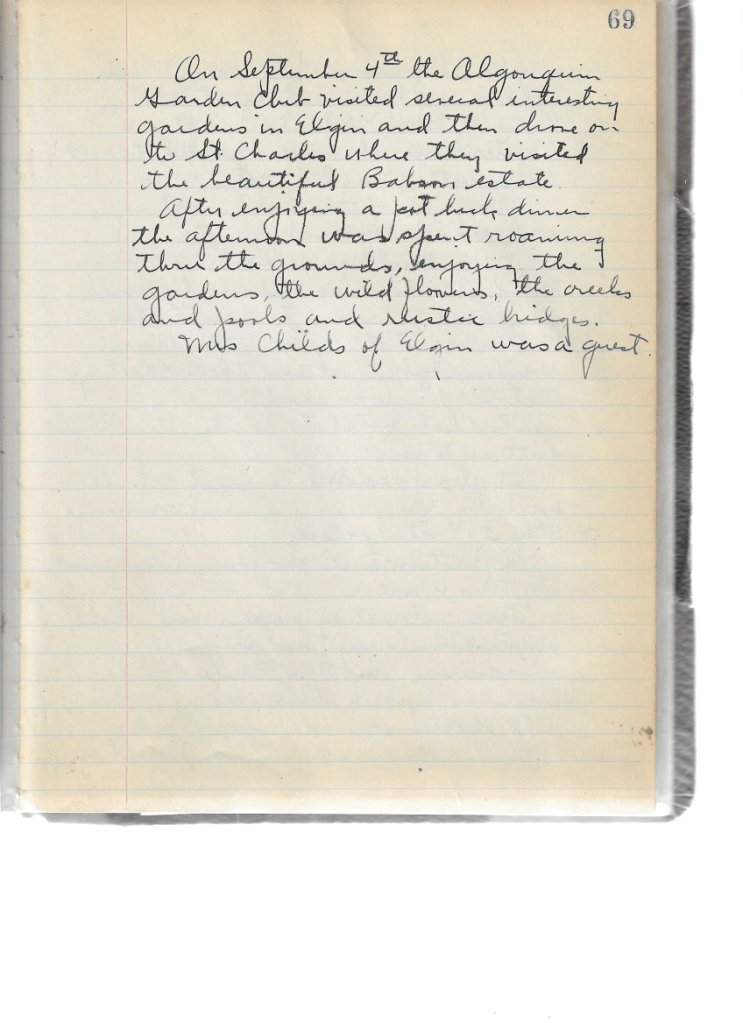 69
On September 4th the Algonquin
Garden Club visited several interesting
gardens in Elgin and then drove on
to St. Charles where they visited
the beautiful Babson estate.
After enjoying a pot luck dinner
the afternoon was spent roaming
thru the grounds, enjoying the
gardens, the wild flowers, the creeks
and pools and rustic bridges.
Mrs Childs of Elgin was a guest.